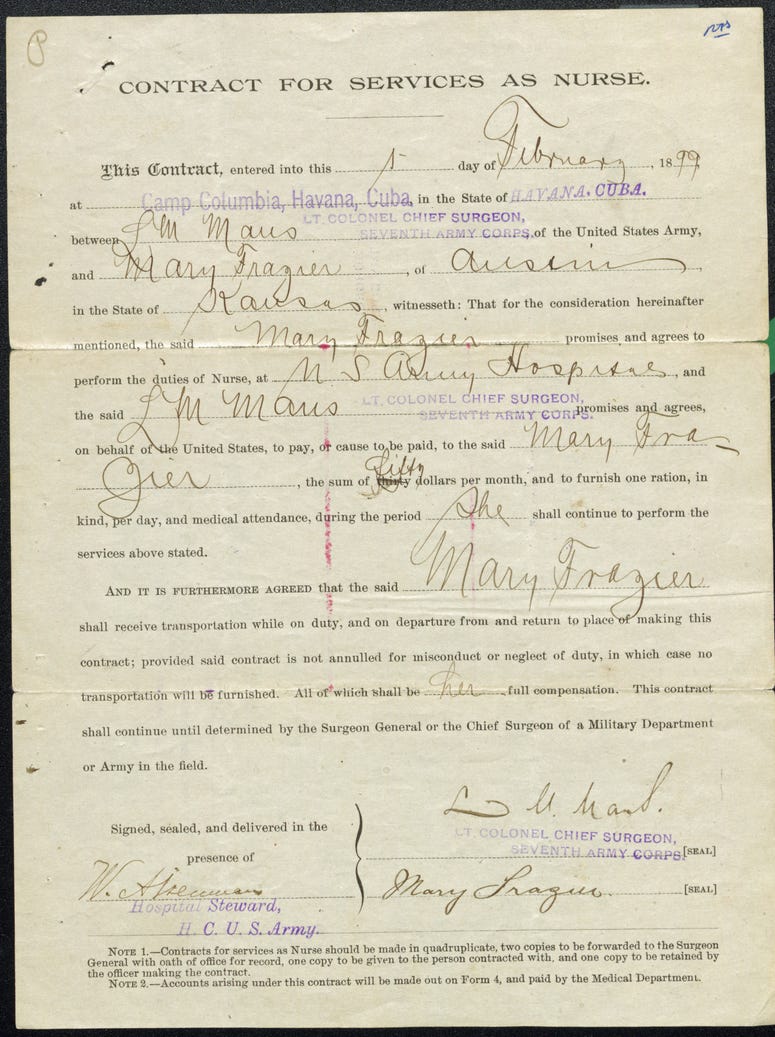 CONTRACT FOR SERVICES AS NURSE.
This Contract, entered into this 1 day of February, 1899
at Camp Columbia, Havana, Cuba, in the State of HAVANA. CUBA.
LT. COLONEL CHIEF SURGEON,
between L M Maus SEVENTH ARMY CORPS, of the United States Army,
and Mary Frazier, of Austin,
in the State of Kansas, witnesseth: That for the consideration hereinafter
mentioned, the said Mary Frazier promises and agrees to
perform the duties of Nurse, at U S Army Hospital, and
LT. COLONEL CHIEF SURGEON,
the said L M Maus SEVENTH ARMY CORPS. promises and agrees,
on behalf of the United States, to pay, or cause to be paid, to the said Mary Fra-
zier, the sum of thirty Fifty dollars per month, and to furnish one ration, in
kind, per day, and medical attendance, during the period She shall continue to perform the
services above stated.
AND IT IS FURTHERMORE AGREED that the said Mary Frazier
shall receive transportation while on duty, and on departure from and return to place of making this
contract; provided said contract is not annulled for misconduct or neglect of duty, in which case no
transportation will be furnished. All of which shall be her full compensation. This contract
shall continue until determined by the Surgeon General or the Chief Surgeon of a Military Department
or Army in the field.
L M Maus.
Signed, sealed, and delivered in the
LT. COLONEL CHIEF SURGEON,
presence of SEVENTH ARMY CORPS. [SEAL]
Mary Frazier. [SEAL]
Hospital Steward,
H. C. U. S. Army.
NOTE 1.—Contracts for services as Nurse should be made in quadruplicate, two copies to be forwarded to the Surgeon
General with oath of office for record, one copy to be given to the person contracted with, and one copy to be retained by
the officer making the contract.
NOTE 2.—Accounts arising under this contract will be made out on Form 4, and paid by the Medical Department.